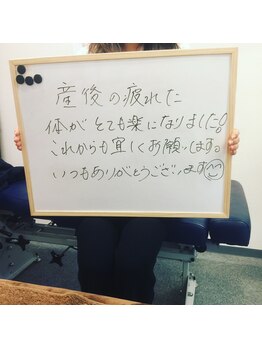 産後の疲れた
体がとても楽になりました!
これからも宜しくお願いします。
いつもありがとうございます